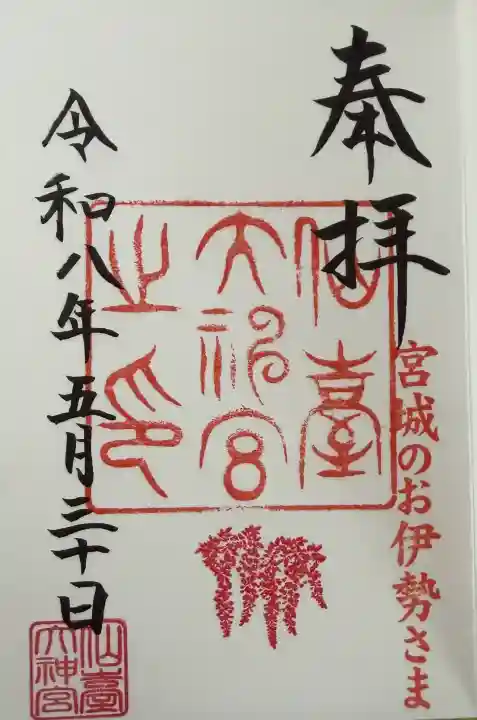 奉拝
宮城のお伊勢さま
仙臺
大神宮
之印
令和八年五月三十日
仙臺
大神宮